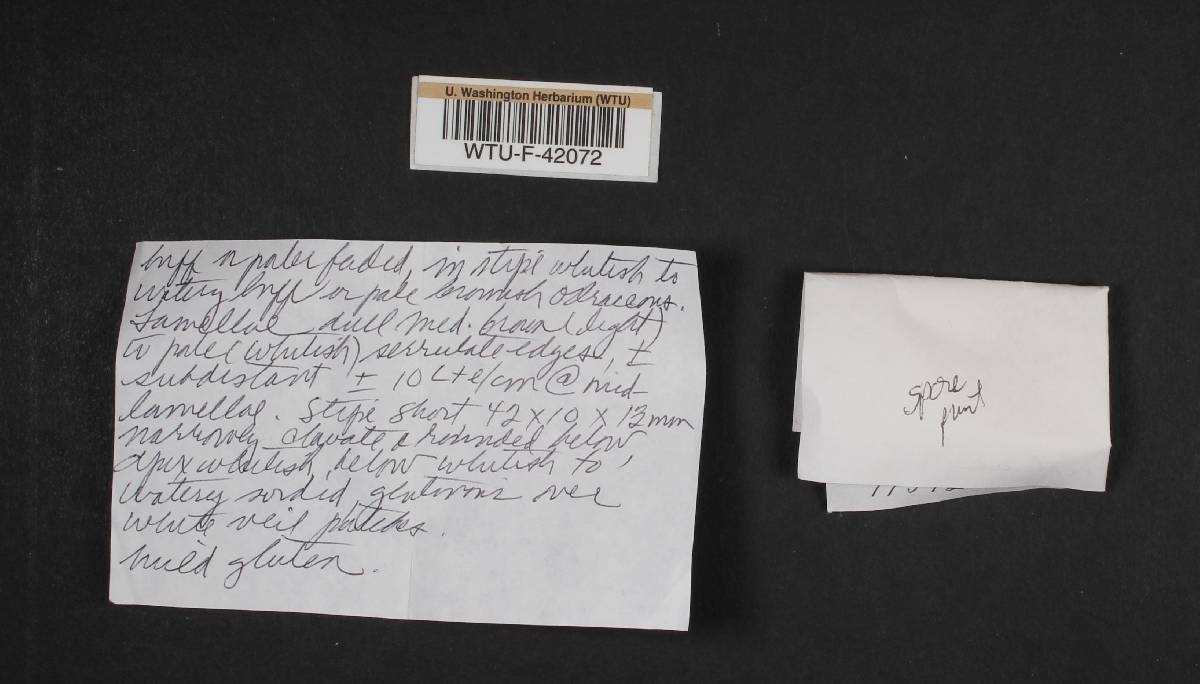 U. Washington Herbarium (WTU)
WTU-F-42072
buff n paler faded, in stipe whitish to
watery buff or pale brownish odraceous.
Lamellae dull med. brown (light)
to pale (whitish) serrulate edges, ±
subdistant ± 10 L+e/cm @ mid-
lamellae. Stipe short 42 x 10 x 13mm
narrowly clavate & rounded below
apex whitish, below whitish to
watery sordid, glutinous over
white veil patches.
mild gluten.
spore
print